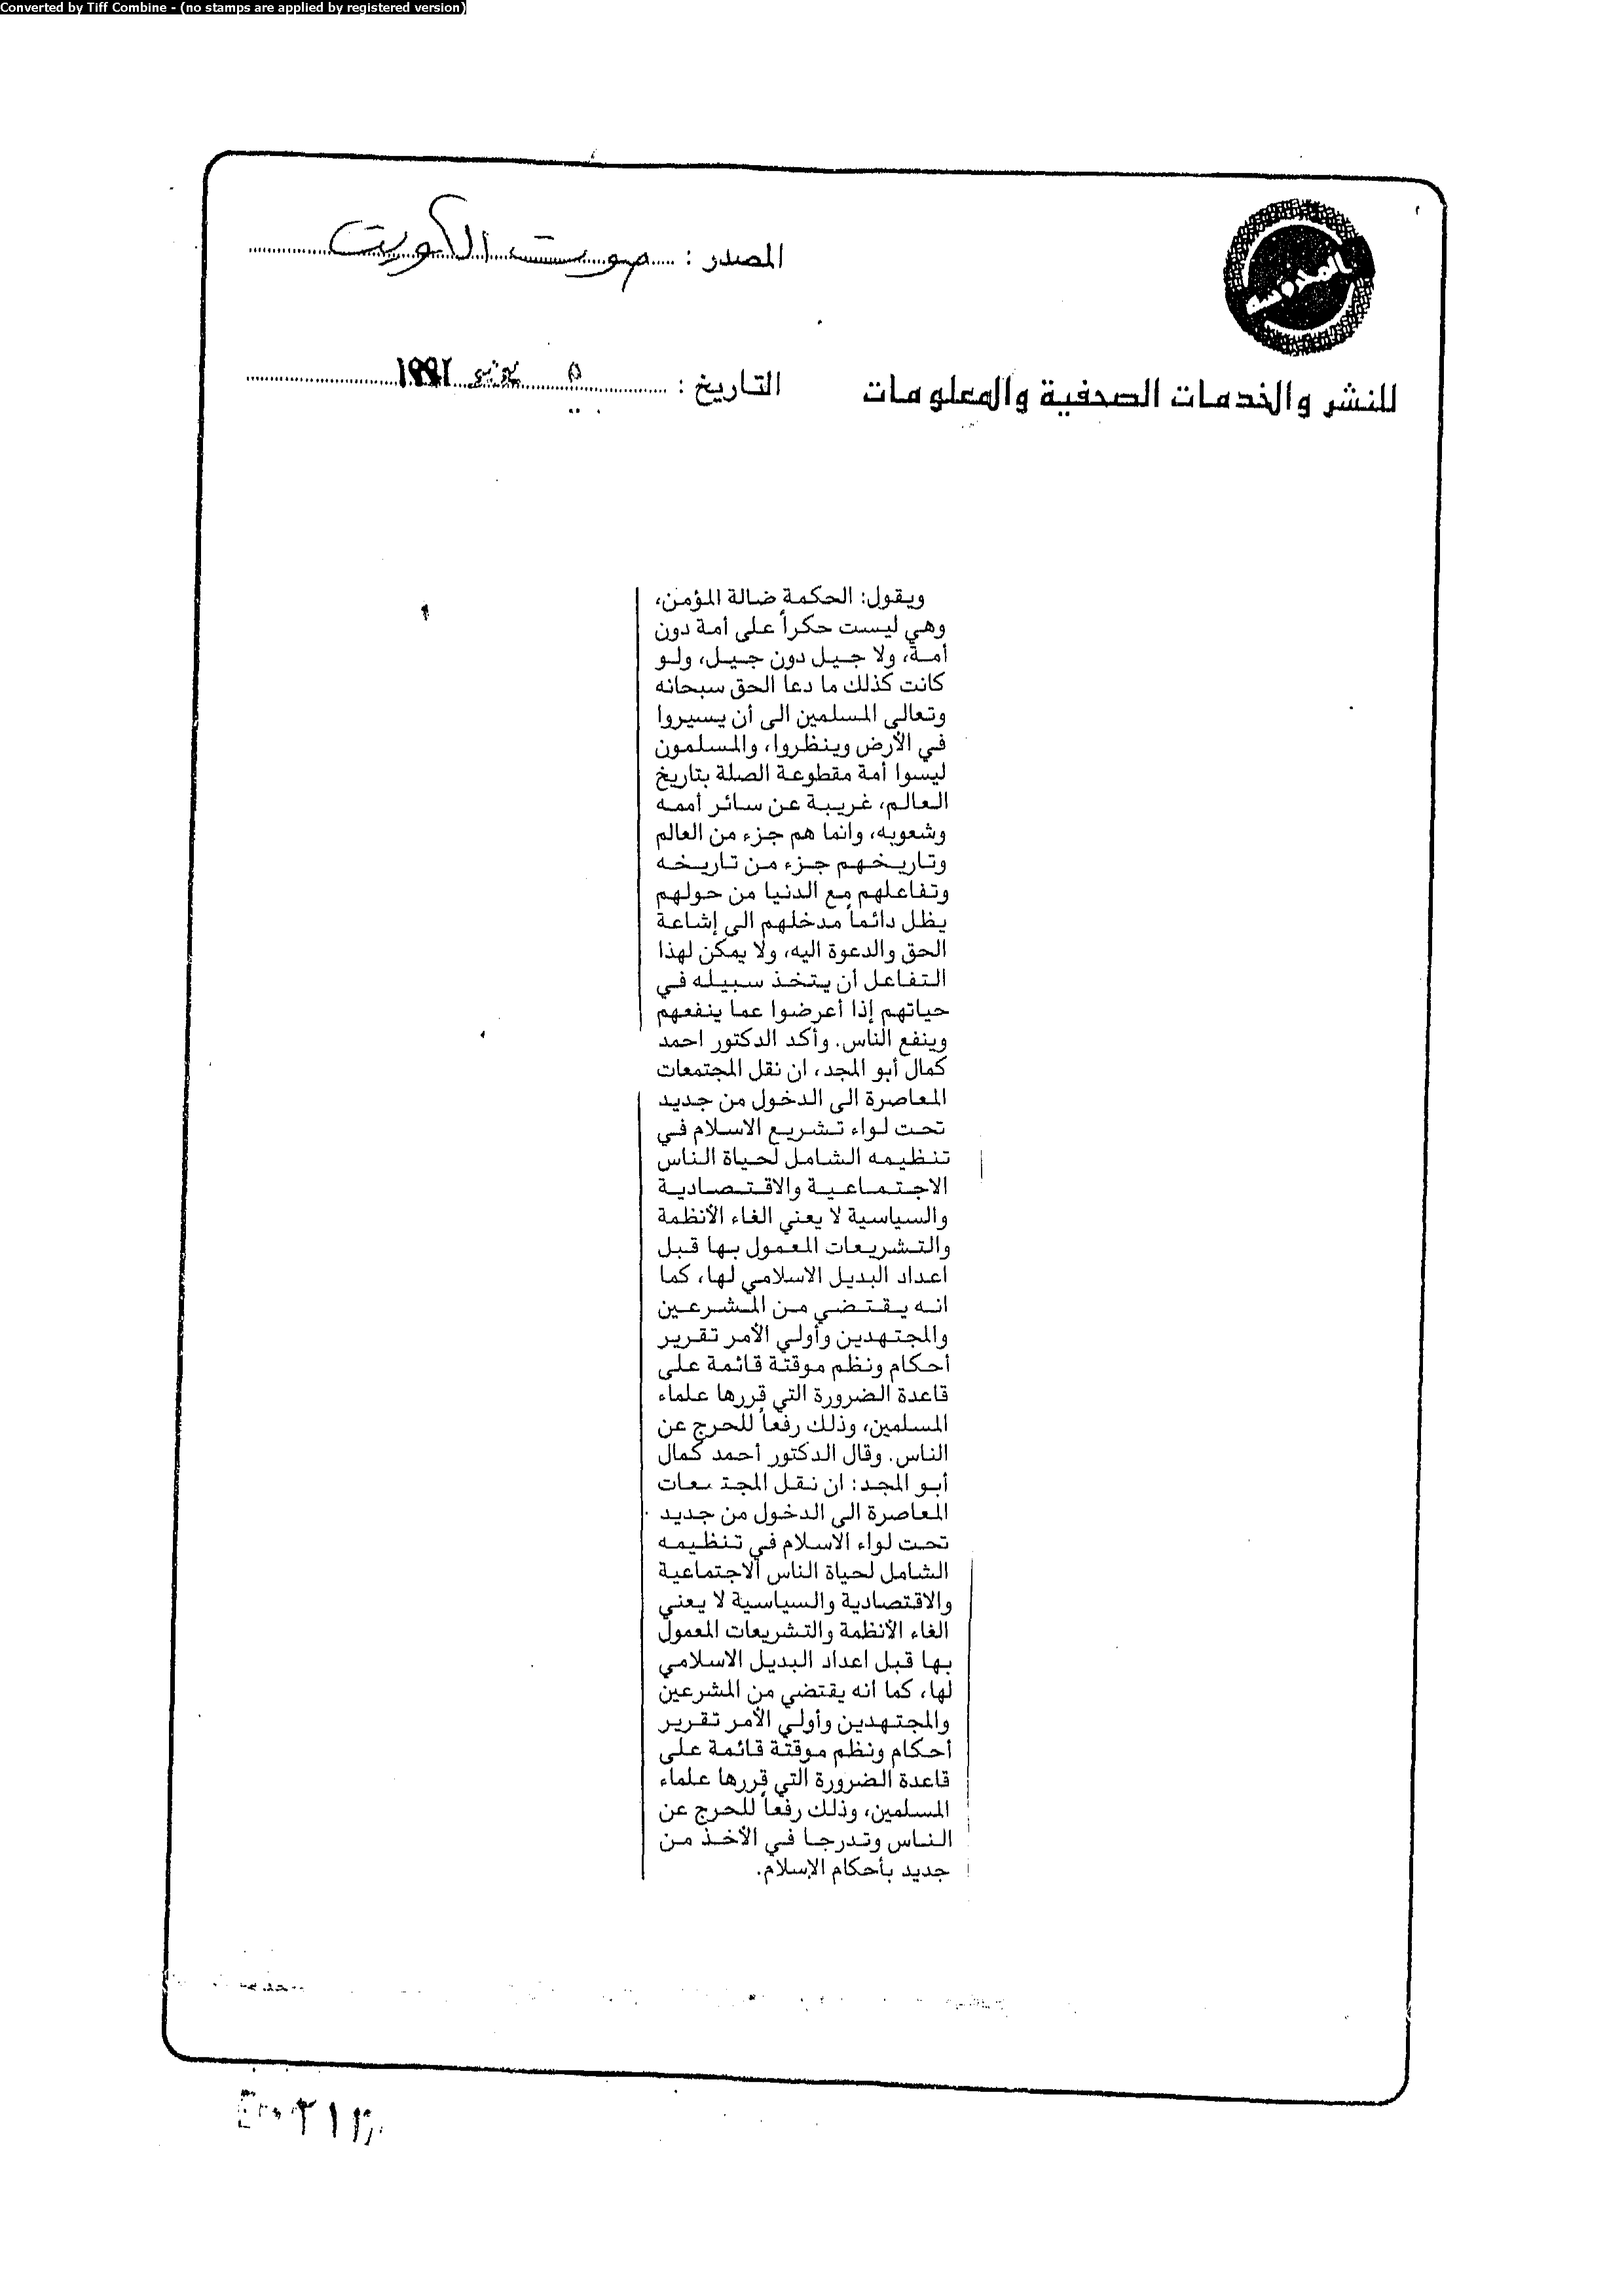 Converted by Tiff Combine - (no stamps are applied by registered version)
المصدر : صوت الكويت
المحروسة
للنشر والخدمات الصحفية والمعلومات
التاريخ : ٥ يونيو ١٩٩٢
ويقول: الحكمة ضالة المؤمن،
وهي ليست حكراً على أمة دون
أمة، ولا جيل دون جيل، ولو
كانت كذلك ما دعا الحق سبحانه
وتعالى المسلمين الى أن يسيروا
في الأرض وينظروا، والمسلمون
ليسوا أمة مقطوعة الصلة بتاريخ
العالم، غريبة عن سائر أممه
وشعوبه، وانما هم جزء من العالم
وتاريخهم جزء من تاريخه
وتفاعلهم مع الدنيا من حولهم
يظل دائماً مدخلهم الى إشاعة
الحق والدعوة اليه، ولا يمكن لهذا
التفاعل أن يتخذ سبيله في
حياتهم إذا أعرضوا عما ينفعهم
وينفع الناس. وأكد الدكتور احمد
كمال أبو المجد، ان نقل المجتمعات
المعاصرة الى الدخول من جديد
تحت لواء تشريع الاسلام في
تنظيمه الشامل لحياة الناس
الاجتماعية والاقتصادية
والسياسية لا يعني الغاء الأنظمة
والتشريعات المعمول بها قبل
اعداد البديل الاسلامي لها، كما
انه يقتضي من المشرعين
والمجتهدين وأولي الأمر تقرير
أحكام ونظم موقتة قائمة على
قاعدة الضرورة التي قررها علماء
المسلمين، وذلك رفعاً للحرج عن
الناس. وقال الدكتور أحمد كمال
أبو المجد: ان نقل المجتمعات
المعاصرة الى الدخول من جديد
تحت لواء الاسلام في تنظيمه
الشامل لحياة الناس الاجتماعية
والاقتصادية والسياسية لا يعني
الغاء الأنظمة والتشريعات المعمول
بها قبل اعداد البديل الاسلامي
لها، كما انه يقتضي من المشرعين
والمجتهدين وأولي الأمر تقرير
أحكام ونظم موقتة قائمة على
قاعدة الضرورة التي قررها علماء
المسلمين، وذلك رفعاً للحرج عن
الناس وتدرجا في الأخذ من
جديد بأحكام الإسلام.